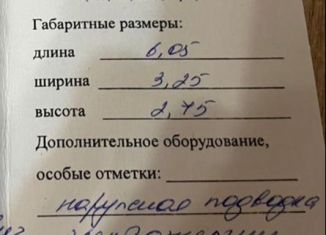 Габаритные размеры:
длина 6,05
ширина 3,25
высота 2,75
Дополнительное оборудование,
особые отметки:
подводка